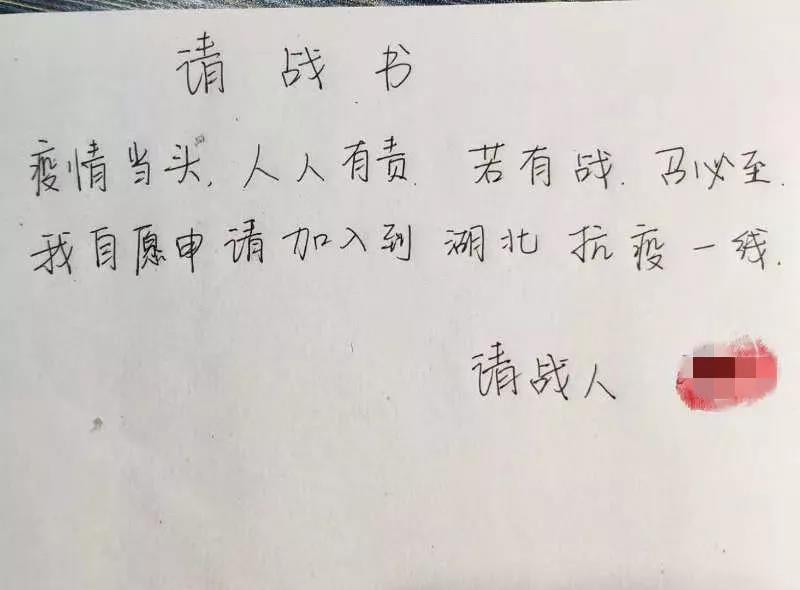 请战书
疫情当头,人人有责.若有战.召必至.
我自愿申请加入到湖北抗疫一线.
请战人